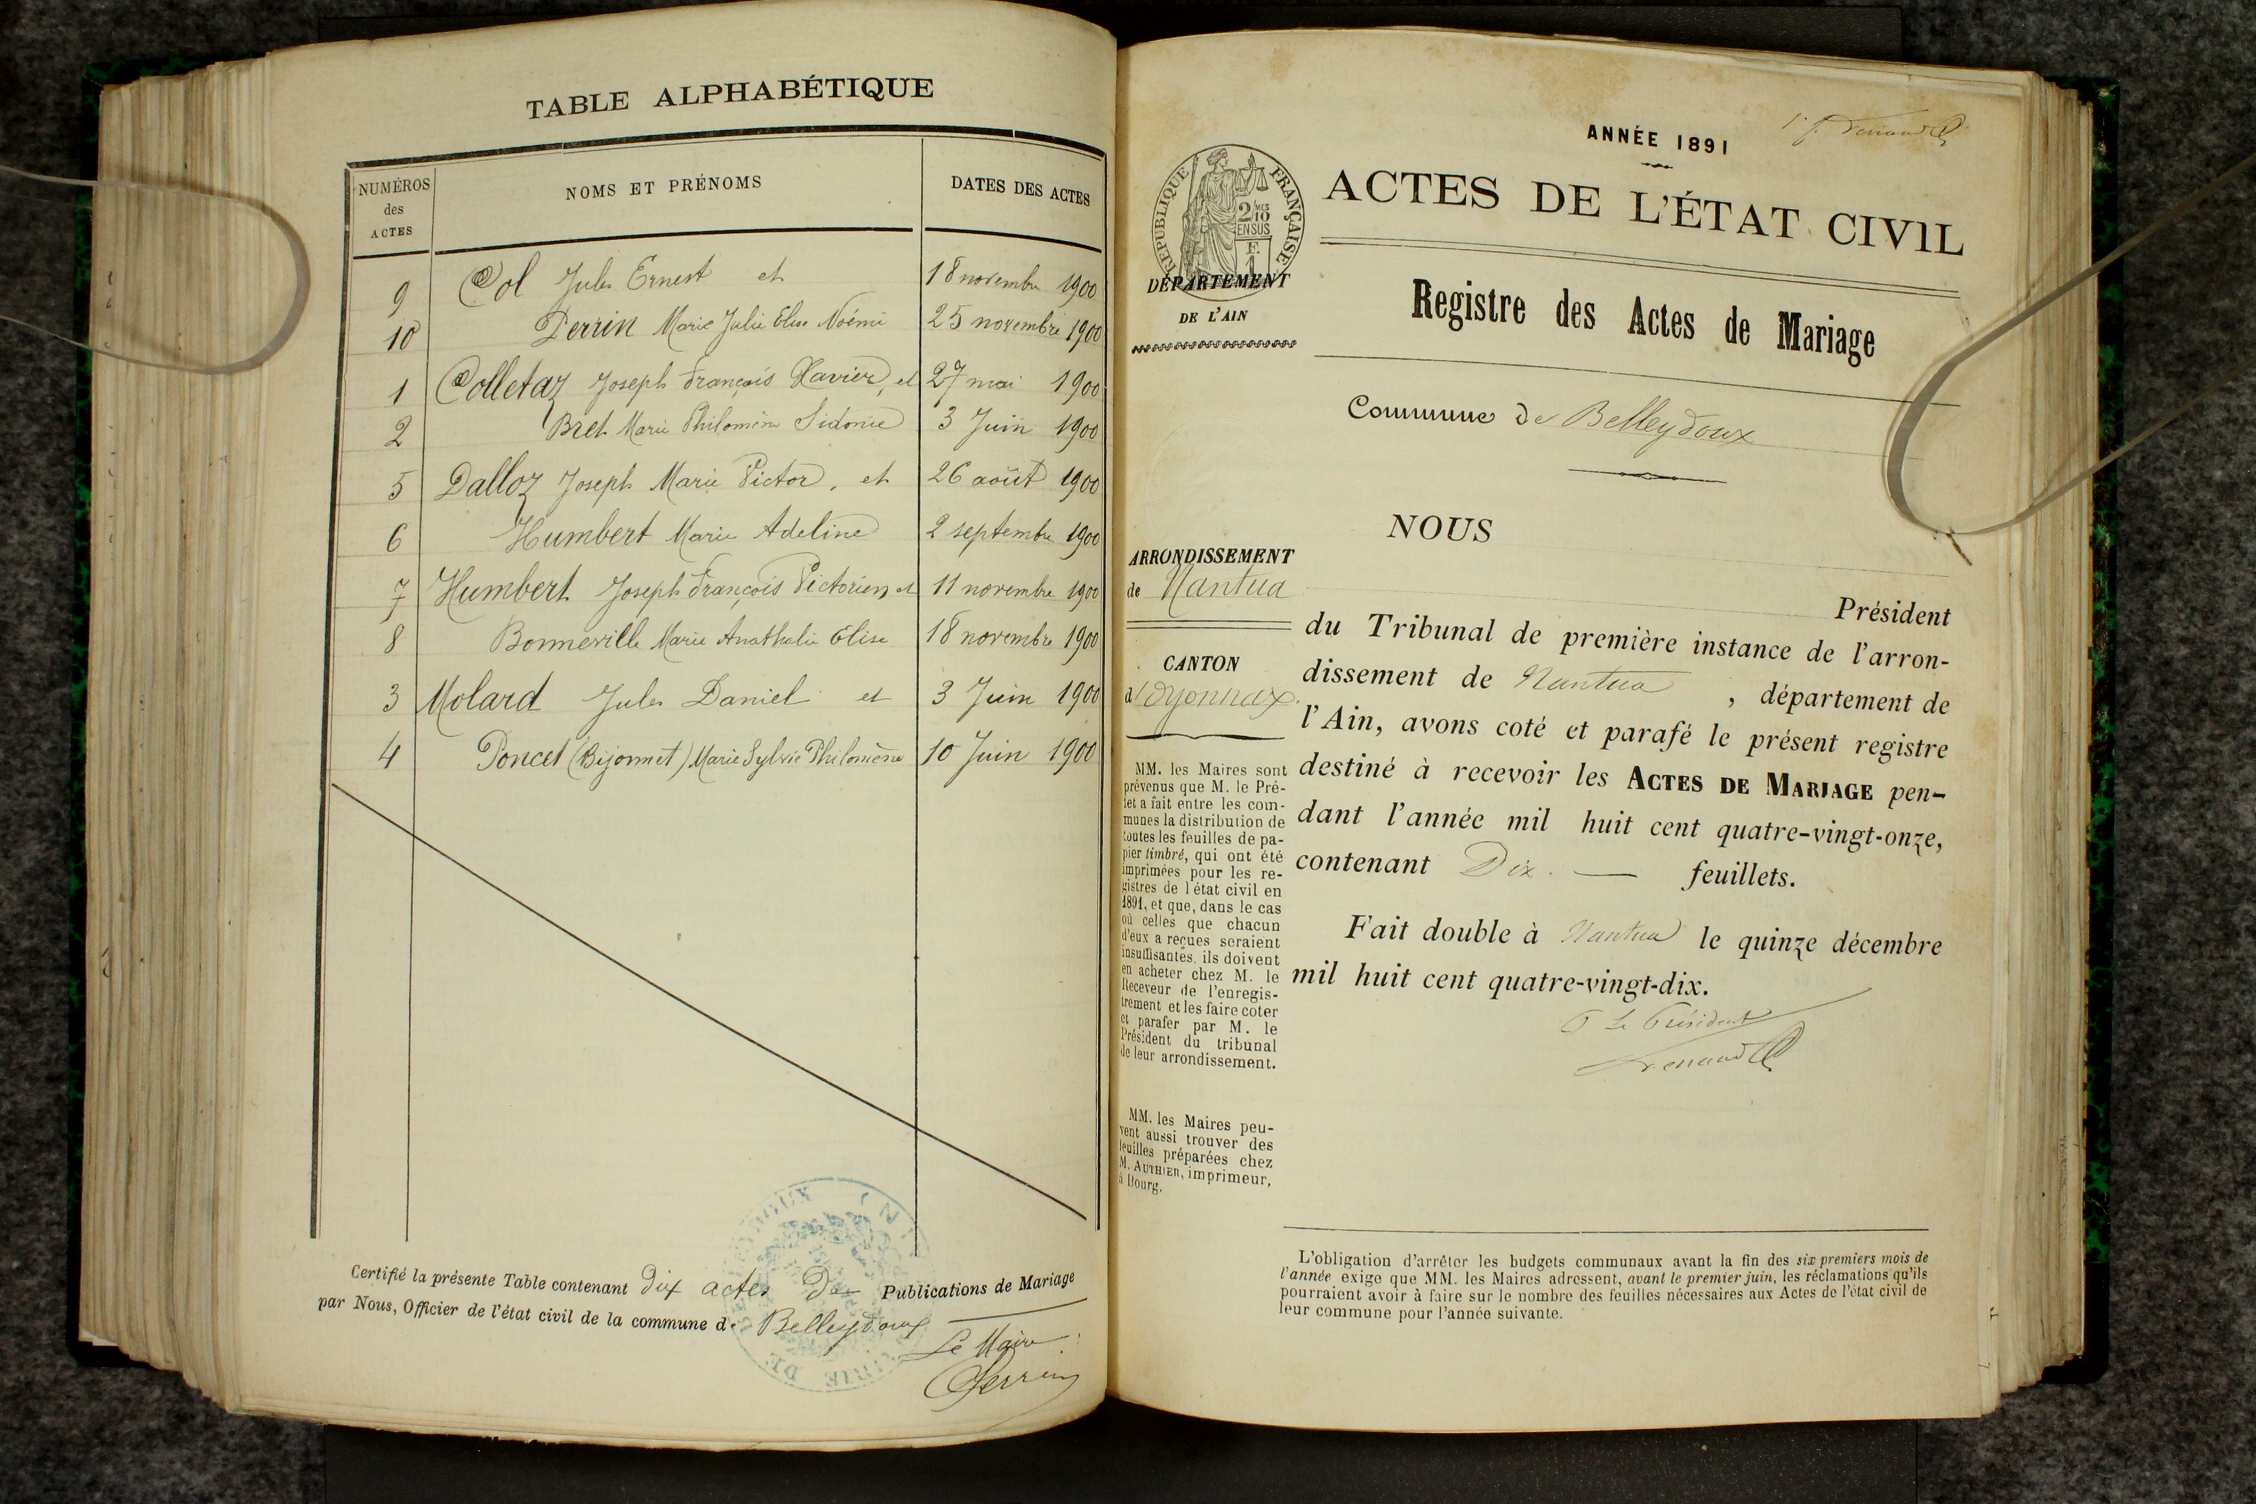 TABLE ALPHABÉTIQUE
NUMÉROS
des
ACTES
NOMS ET PRÉNOMS
DATES DES ACTES
9 Col Jules Ernest et 18 novembre 1900
10 Perrin Marie Julie Elise Noémi 25 novembre 1900
1 Colletaz Joseph François Xavier, et 27 mai 1900
2 Bret Marie Philomène Sidonie 3 Juin 1900
5 Dalloz Joseph Marie Victor, et 26 août 1900
6 Humbert Marie Adeline 2 septembre 1900
7 Humbert Joseph François Victorien et 11 novembre 1900
8 Bonneville Marie Anathalie Elise 18 novembre 1900
3 Molard Jules Daniel et 3 Juin 1900
4 Poncet (Bijonnet) Marie Sylvie Philomène 10 Juin 1900
Certifié la présente Table contenant dix actes De Publications de Mariage
par Nous, Officier de l'état civil de la commune de Belleydoux
Le Maire
Perrin
ANNÉE 1891
RÉPUBLIQUE FRANÇAISE
2/10 MES
EN SUS
E
1
ACTES DE L'ÉTAT CIVIL
DÉPARTEMENT
DE L'AIN
Registre des Actes de Mariage
Commune de Belleydoux
ARRONDISSEMENT
de Nantua
CANTON
d'Oyonnax
MM. les Maires sont
prévenus que M. le Pré-
fet a fait entre les com-
munes la distribution de
toutes les feuilles de pa-
pier timbré, qui ont été
imprimées pour les re-
gistres de l'état civil en
1891, et que, dans le cas
où celles que chacun
d'eux a reçues seraient
insuffisantes, ils doivent
en acheter chez M. le
Receveur de l'enregis-
trement et les faire coter
et parafer par M. le
Président du tribunal
de leur arrondissement.
MM. les Maires peu-
vent aussi trouver des
feuilles préparées chez
M. AUTHIER, imprimeur,
à Bourg.
NOUS
Président
du Tribunal de première instance de l'arron-
dissement de Nantua, département de
l'Ain, avons coté et parafé le présent registre
destiné à recevoir les ACTES DE MARIAGE pen-
dant l'année mil huit cent quatre-vingt-onze,
contenant Dix — feuillets.
Fait double à Nantua le quinze décembre
mil huit cent quatre-vingt-dix.
Le Président
L'obligation d'arrêter les budgets communaux avant la fin des six premiers mois de
l'année exige que MM. les Maires adressent, avant le premier juin, les réclamations qu'ils
pourraient avoir à faire sur le nombre des feuilles nécessaires aux Actes de l'état civil de
leur commune pour l'année suivante.